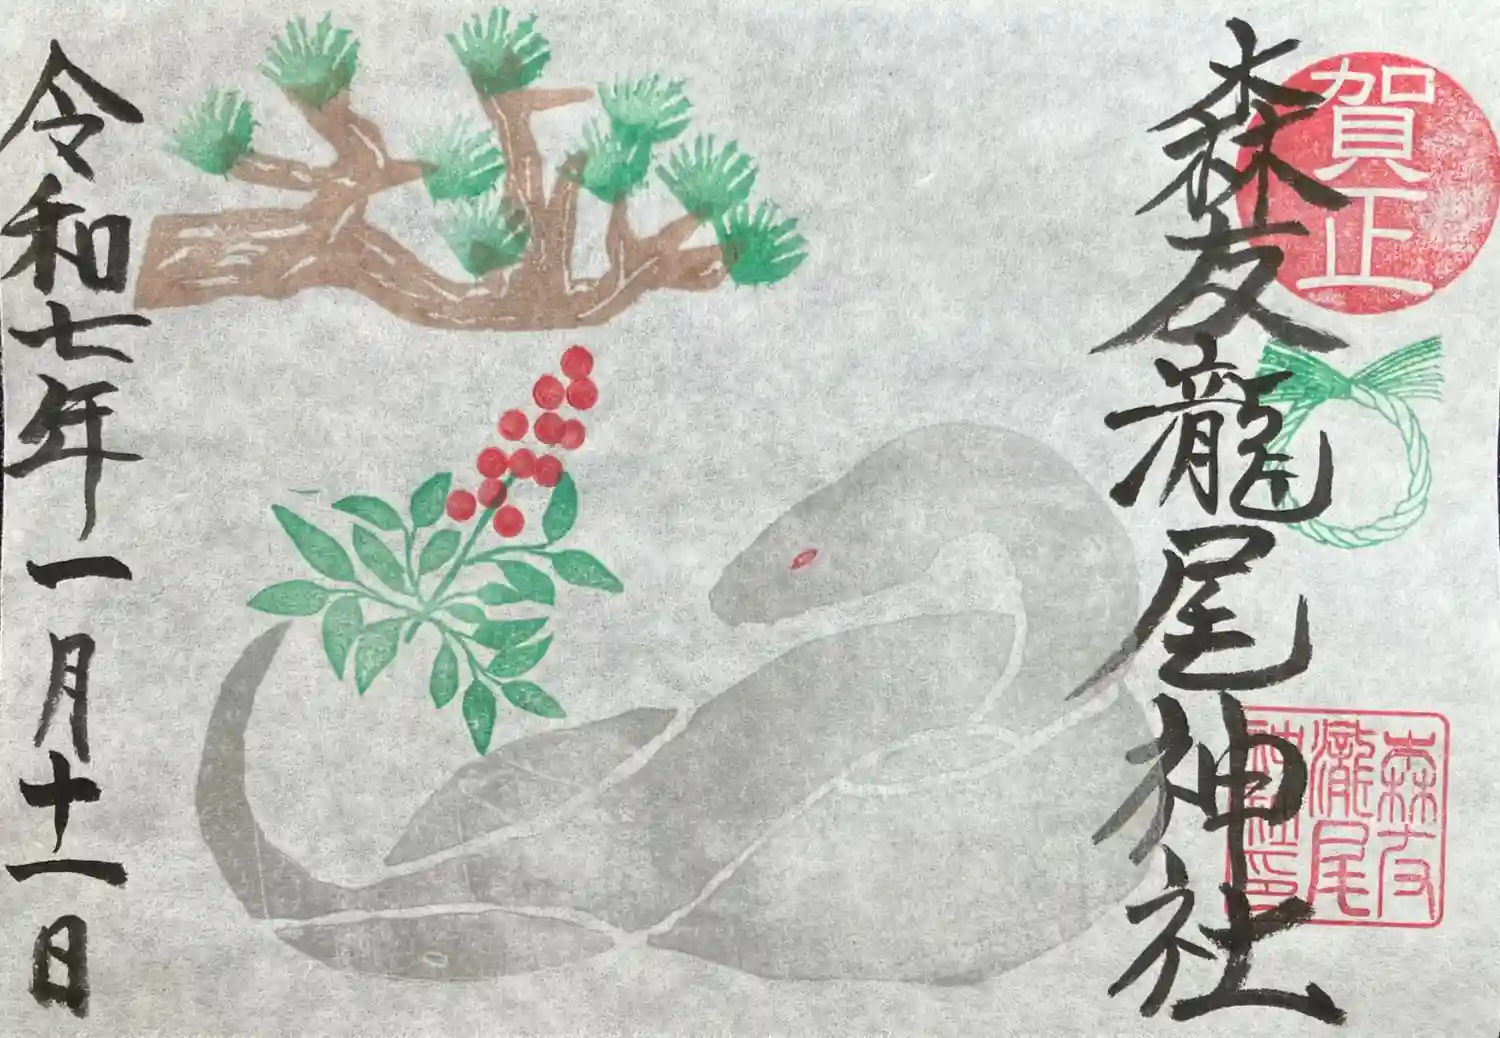 賀正
森友瀧尾神社
森友
瀧尾
神社印
令和七年一月十一日